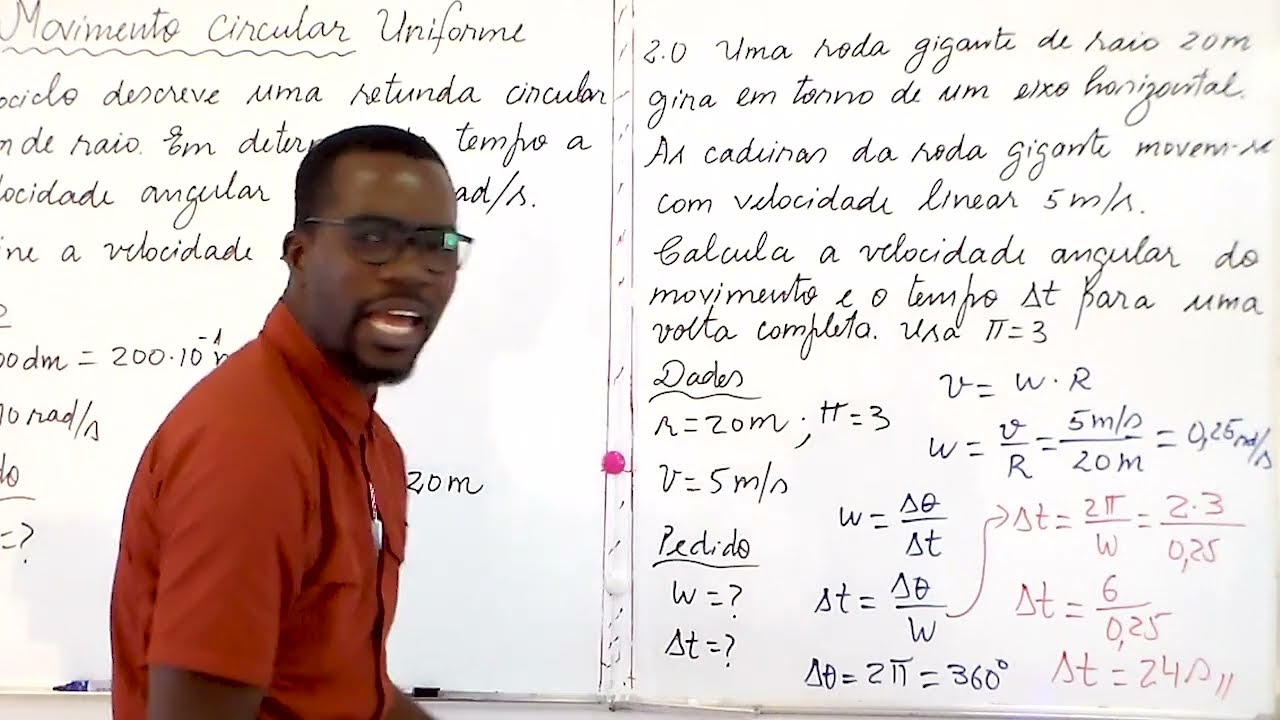 Movimento Circular Uniforme
ociclo descreve uma retunda circular
m de raio. Em deter tempo a
locidade angular ad/s.
ine a velocidade
2
00dm = 200.10⁻¹
10 rad/s
do
=?
20m
2.0 Uma roda gigante de raio 20m
gira em torno de um eixo horizontal.
As cadeiras da roda gigante movem-se
com velocidade linear 5m/s.
Calcula a velocidade angular do
movimento e o tempo Δt para uma
volta completa. Usa π=3
Dados
r=20m ; π=3
v=5m/s
Pedido
W=?
Δt=?
v= W·R
W = v/R = 5m/s / 20m = 0,25rad/s
W = Δθ/Δt
Δt = Δθ/W
Δθ=2π=360°
Δt = 2π/W = 2.3/0,25
Δt = 6/0,25
Δt = 24s //